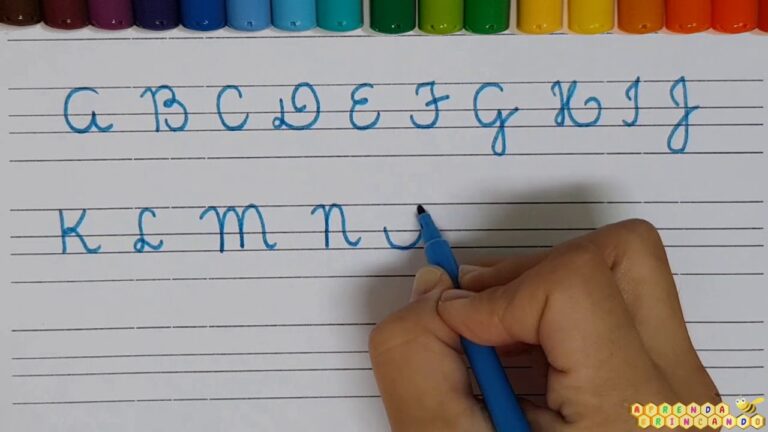 A B C D E F G H I J
K L M N
APRENDA
BRINCANDO